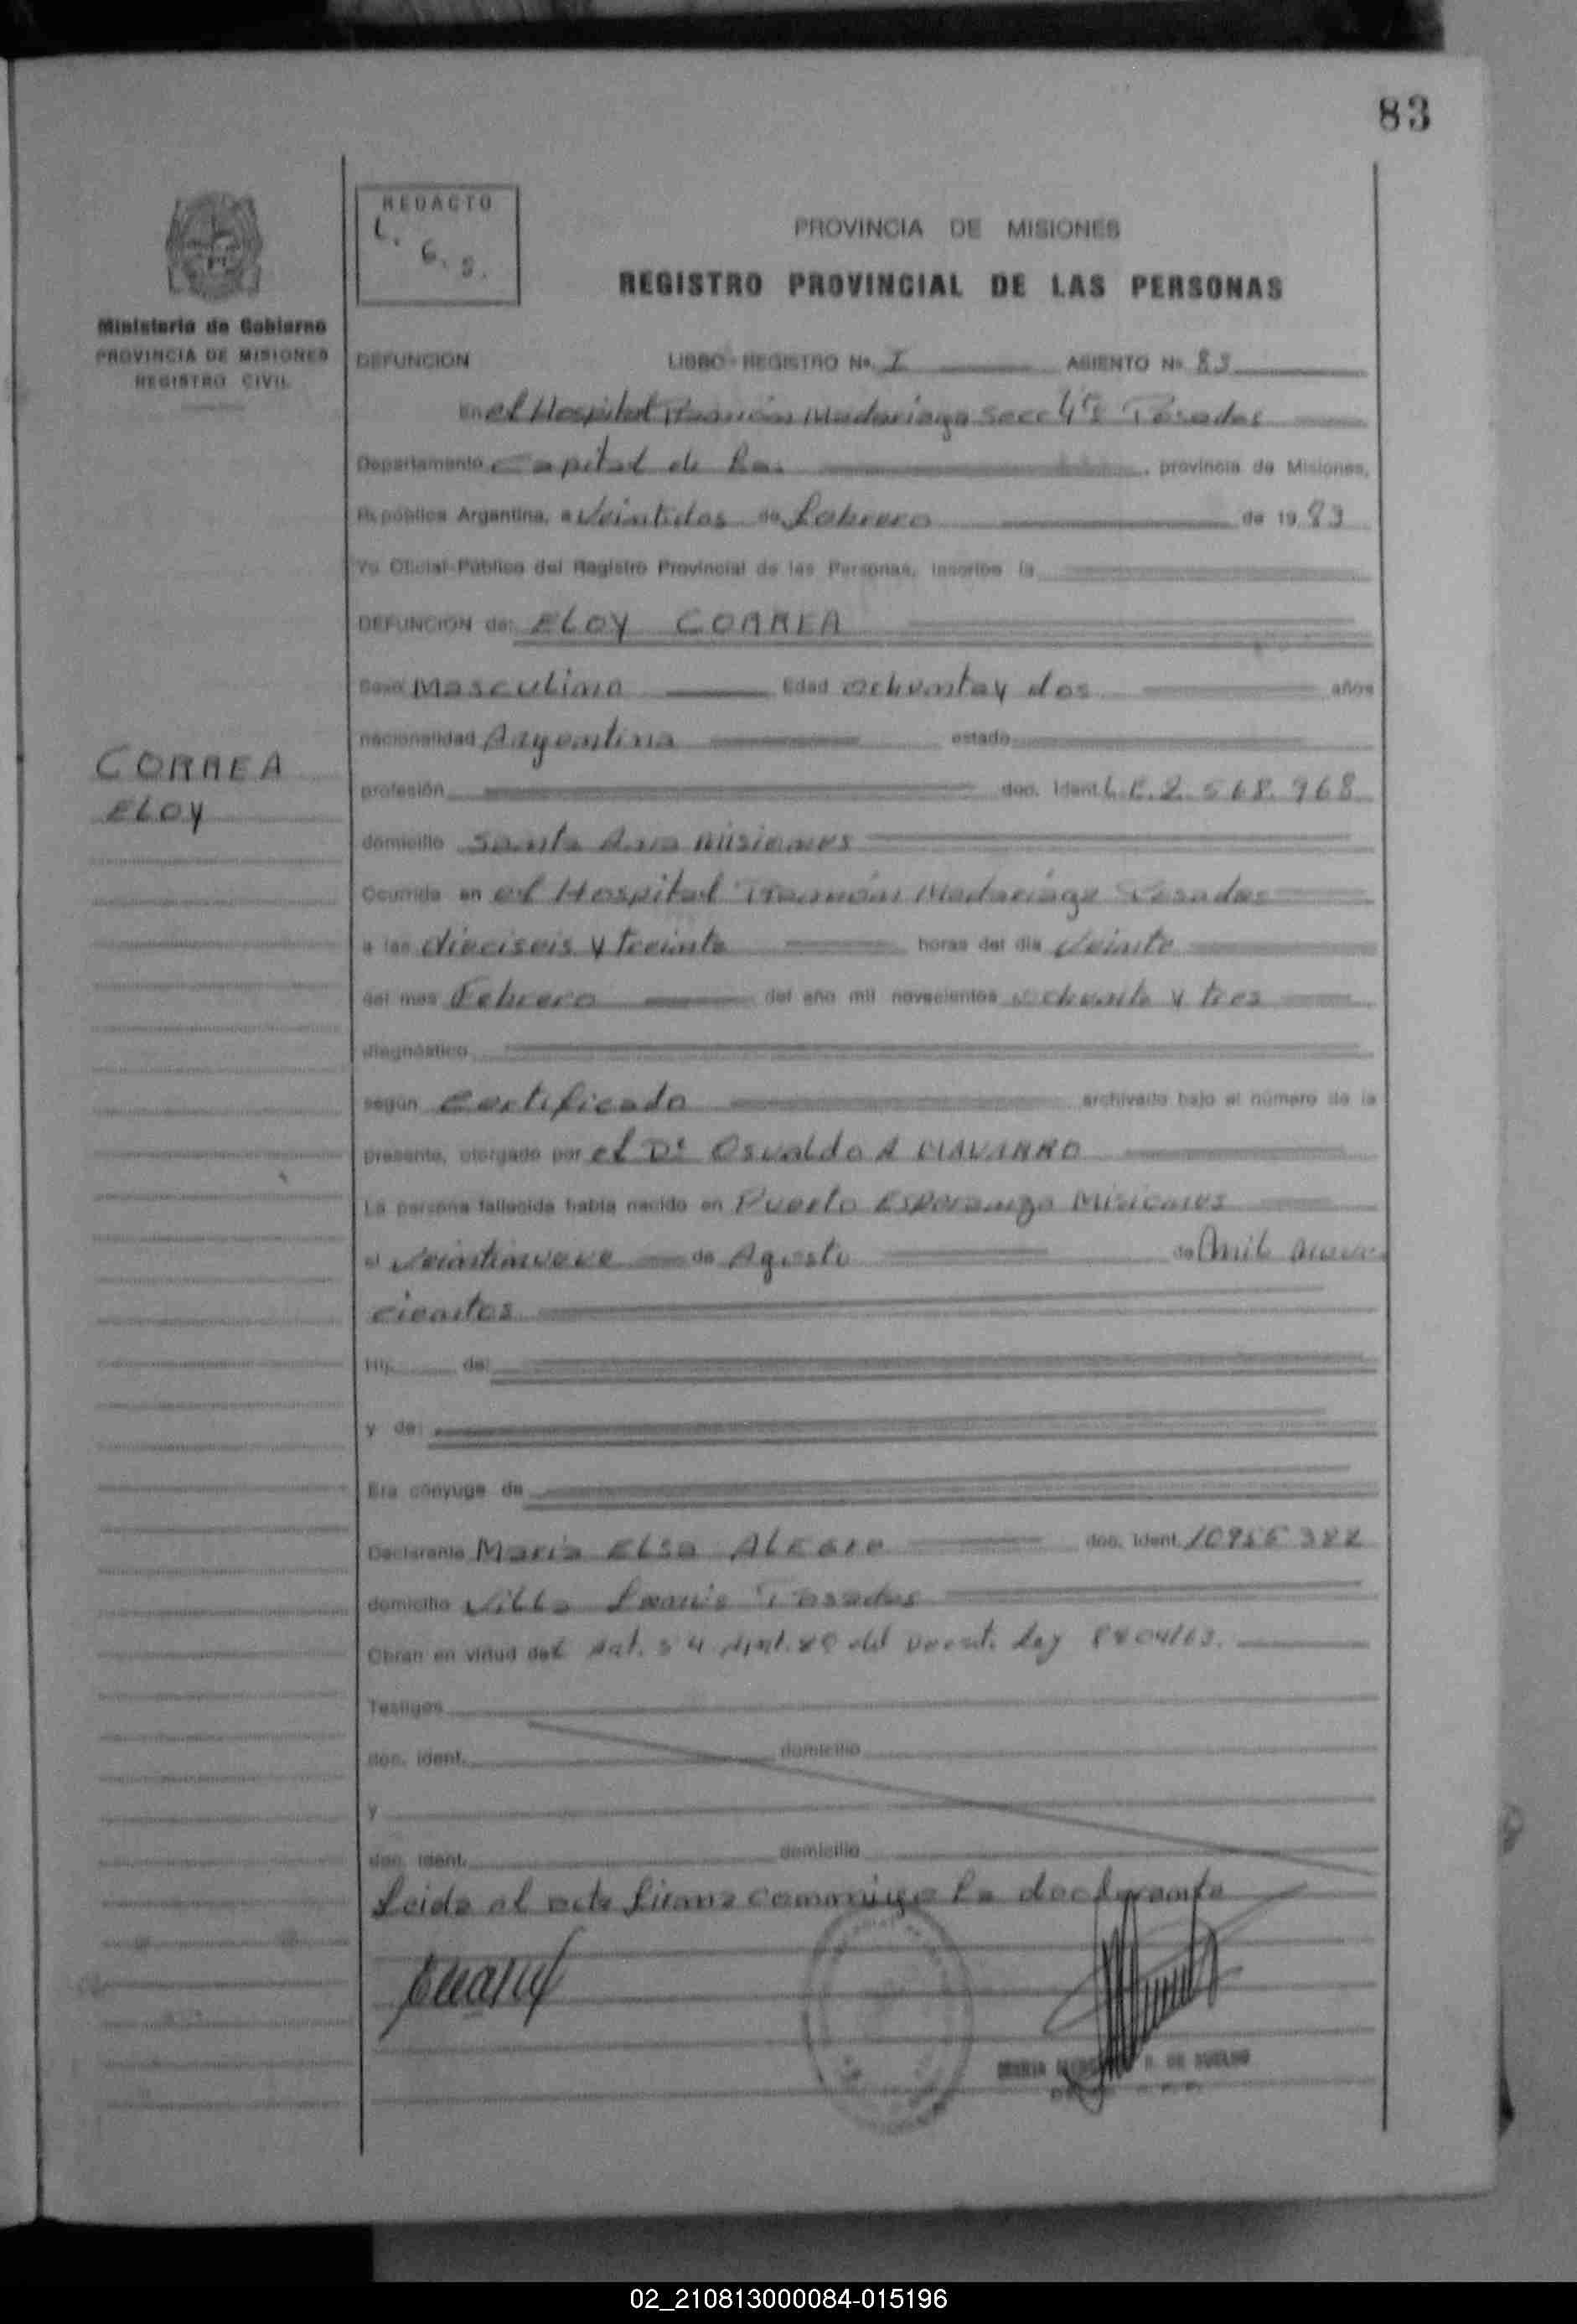 83
REDACTO
L. G. S.
PROVINCIA DE MISIONES
REGISTRO PROVINCIAL DE LAS PERSONAS
Ministerio de Gobierno
PROVINCIA DE MISIONES
REGISTRO CIVIL
DEFUNCION LIBRO - REGISTRO Nº. I ASIENTO Nº 83
En el Hospital Ramón Madariaga Secc 4ta Posadas
Departamento Capital de la provincia de Misiones,
República Argentina, a Veintidos de Febrero de 1983
Yo Oficial Público del Registro Provincial de las Personas, inscribo la
DEFUNCION de: ELOY CORREA
Sexo Masculino Edad ochenta y dos años
nacionalidad Argentina estado
CORREA
ELOY
profesión doc. ident. L.E. 2.568.968
domicilio Santa Ana Misiones
Ocurrida en el Hospital Ramón Madariaga Posadas
a las dieciseis y treinta horas del día Veinte
del mes Febrero del año mil novecientos ochenta y tres
diagnóstico
según Certificado archivado bajo el número de la
presente, otorgado por el Dr Osvaldo A NAVARRO
La persona fallecida había nacido en Puerto Esperanza Misiones
el Veintinueve de Agosto de mil nove
cientos
Hij de:
y de:
Era cónyuge de
Declarante Maria Elsa ALEGRE doc. ident. 10955382
domicilio Villa Posadas
Obran en virtud del Ley
Testigos
doc. ident. domicilio
y
doc. ident. domicilio
Leida el acta firma conmigo la declarante
MARIA DE
02_210813000084-015196